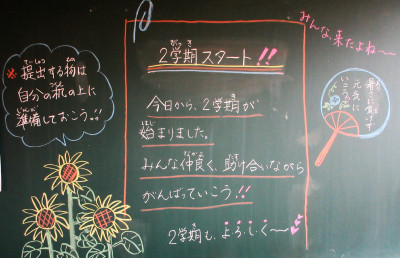 みんな来たよね〜
2学期スタート!!
がっき
※提出する物は
ていしゅつ
もの
自分の机の上に
つくえ
準備しておこう!!
じゅんび
今日から、2学期が
始まりました。
みんな仲良く、助け合いながら
がんばっていこう!!
2学期も、よろしく〜
暑さに負けず
元気に
いこうね